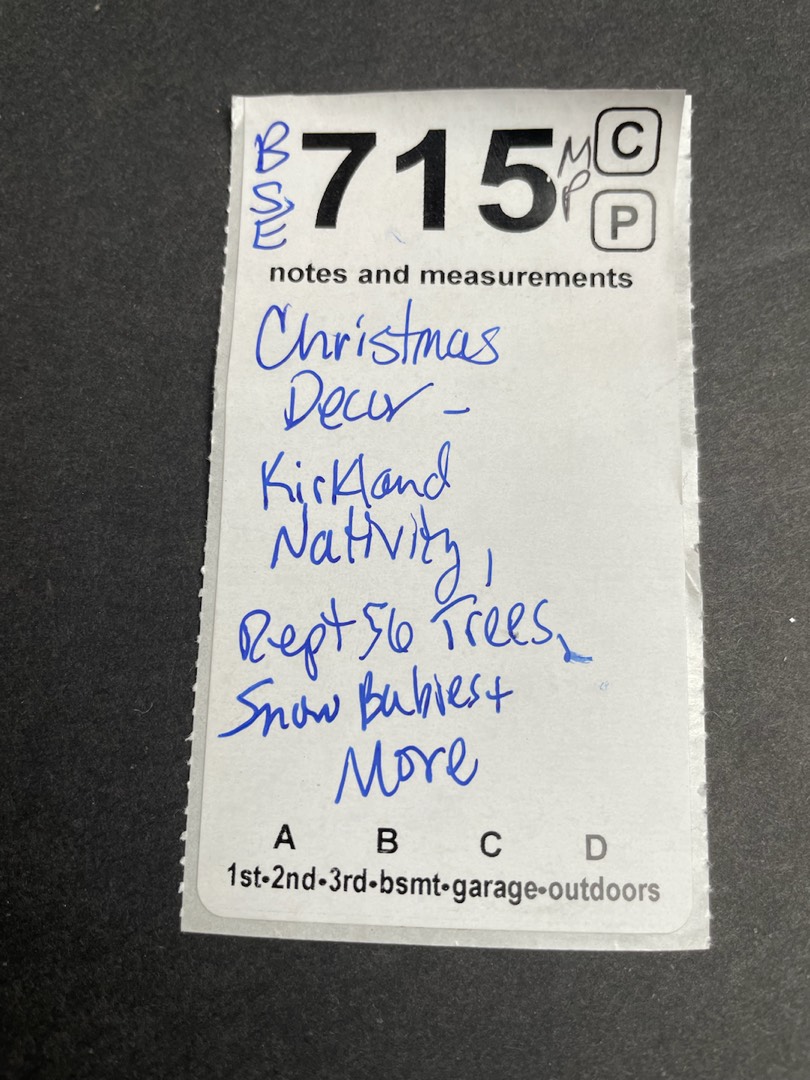 B 715 M C
S P P
E
notes and measurements
Christmas
Decor -
Kirkland
Nativity,
Dept 56 Trees,
Snow Babies +
More
A B C D
1st•2nd•3rd•bsmt•garage•outdoors